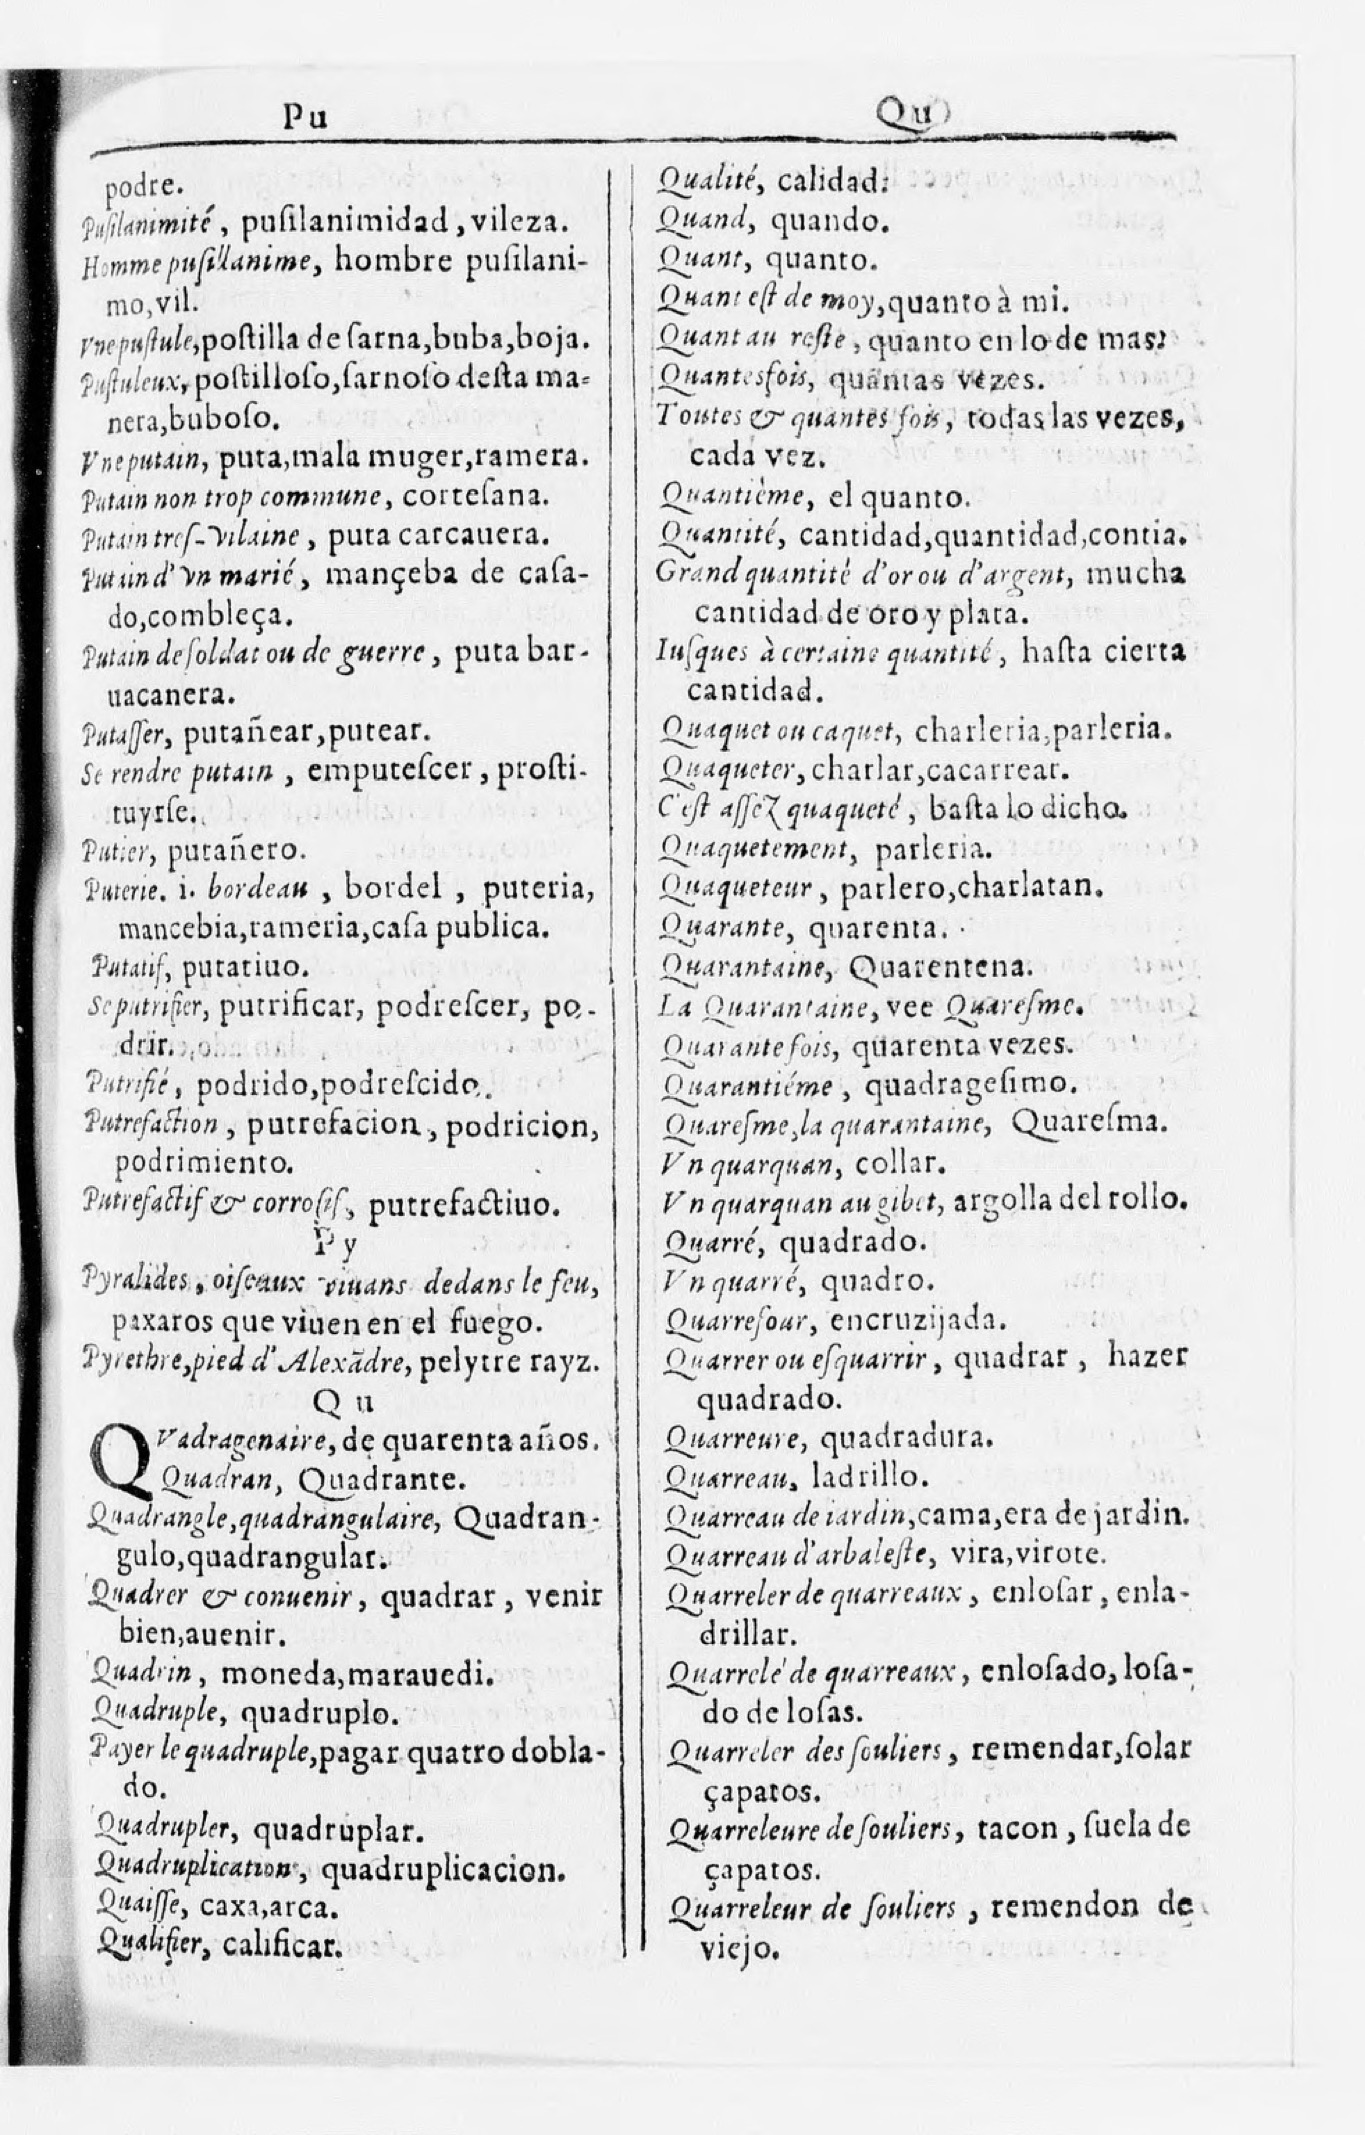 Pu
podre.
Puſilanimité, puſilanimidad, vileza.
Homme puſillanime, hombre puſilani-
mo, vil.
Vne puſtule, poſtilla de ſarna, buba, boja.
Puſtuleux, poſtilloſo, ſarnoſo deſta ma-
nera, buboſo.
Vne putain, puta, mala muger, ramera.
Putain non trop commune, corteſana.
Putain treſ-vilaine, puta carcauera.
Putain d'vn marié, mançeba de caſa-
do, combleça.
Putain de ſoldat ou de guerre, puta bar-
uacanera.
Putaſſer, putañear, putear.
Se rendre putain, emputeſcer, proſti-
tuyrſe.
Putier, putañero.
Puterie. i. bordeau, bordel, puteria,
mancebia, rameria, caſa publica.
Putatif, putatiuo.
Se putrifier, putrificar, podreſcer, po-
drir.
Putrifié, podrido, podreſcido.
Putrefaction, putrefacion, podricion,
podrimiento.
Putrefactif & corroſif, putrefactiuo.
Py
Pyralides, oiſeaux viuans dedans le feu,
paxaros que viuen en el fuego.
Pyrethre, pied d'Alexãdre, pelytre rayz.
Qu
QVadragenaire, de quarenta años.
Quadran, Quadrante.
Quadrangle, quadrangulaire, Quadran-
gulo, quadrangular.
Quadrer & conuenir, quadrar, venir
bien, auenir.
Quadrin, moneda, marauedi.
Quadruple, quadruplo.
Payer le quadruple, pagar quatro dobla-
do.
Quadrupler, quadruplar.
Quadruplication, quadruplicacion.
Quaiſſe, caxa, arca.
Qualifier, calificar.
Qu
Qualité, calidad:
Quand, quando.
Quant, quanto.
Quant eſt de moy, quanto à mi.
Quant au reſte, quanto en lo de mas:
Quantesfois, quantas vezes.
Toutes & quantes fois, todas las vezes,
cada vez.
Quantième, el quanto.
Quantité, cantidad, quantidad, contia.
Grand quantité d'or ou d'argent, mucha
cantidad de oro y plata.
Iuſques à certaine quantité, haſta cierta
cantidad.
Quaquet ou caquet, charleria, parleria.
Quaqueter, charlar, cacarrear.
C'eſt aſſez quaqueté, baſta lo dicho.
Quaquetement, parleria.
Quaqueteur, parlero, charlatan.
Quarante, quarenta.
Quarantaine, Quarentena.
La Quarantaine, vee Quareſme.
Quarante fois, quarenta vezes.
Quarantiéme, quadrageſimo.
Quareſme, la quarantaine, Quareſma.
Vn quarquan, collar.
Vn quarquan au gibet, argolla del rollo.
Quarré, quadrado.
Vn quarré, quadro.
Quarrefour, encruzijada.
Quarrer ou eſquarrir, quadrar, hazer
quadrado.
Quarreure, quadradura.
Quarreau, ladrillo.
Quarreau de iardin, cama, era de jardin.
Quarreau d'arbaleſte, vira, virote.
Quarreler de quarreaux, enloſar, enla-
drillar.
Quarrelé de quarreaux, enloſado, loſa-
do de loſas.
Quarreler des ſouliers, remendar, ſolar
çapatos.
Quarreleure de ſouliers, tacon, ſuela de
çapatos.
Quarreleur de ſouliers, remendon de
viejo.